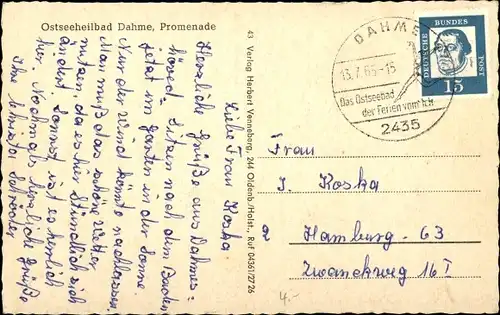 Ostseeheilbad Dahme, Promenade
Liebe Frau Koska.
Herzliche Grüße aus Dahme=
höved. Sitzen nach dem Baden
jetzt im Garten in der Sonne.
Nur der Wind könnte nachlassen.
Man muß das schöne Wetter
nutzen, da es hier stündlich sich
ändert. Sonst ist es herrlich
hier. Nochmals herzliche Grüße
Ihre Schröder
43 Verlag Herbert Venneberg, 244 Oldenb./Holst., Ruf 04361/2726
DAHME
13.7.65-15
Das Ostseebad
der Ferien vom Ich
2435
DEUTSCHE BUNDESPOST
15
Frau
I. Koska
2 Hamburg - 63
16 I
4.-